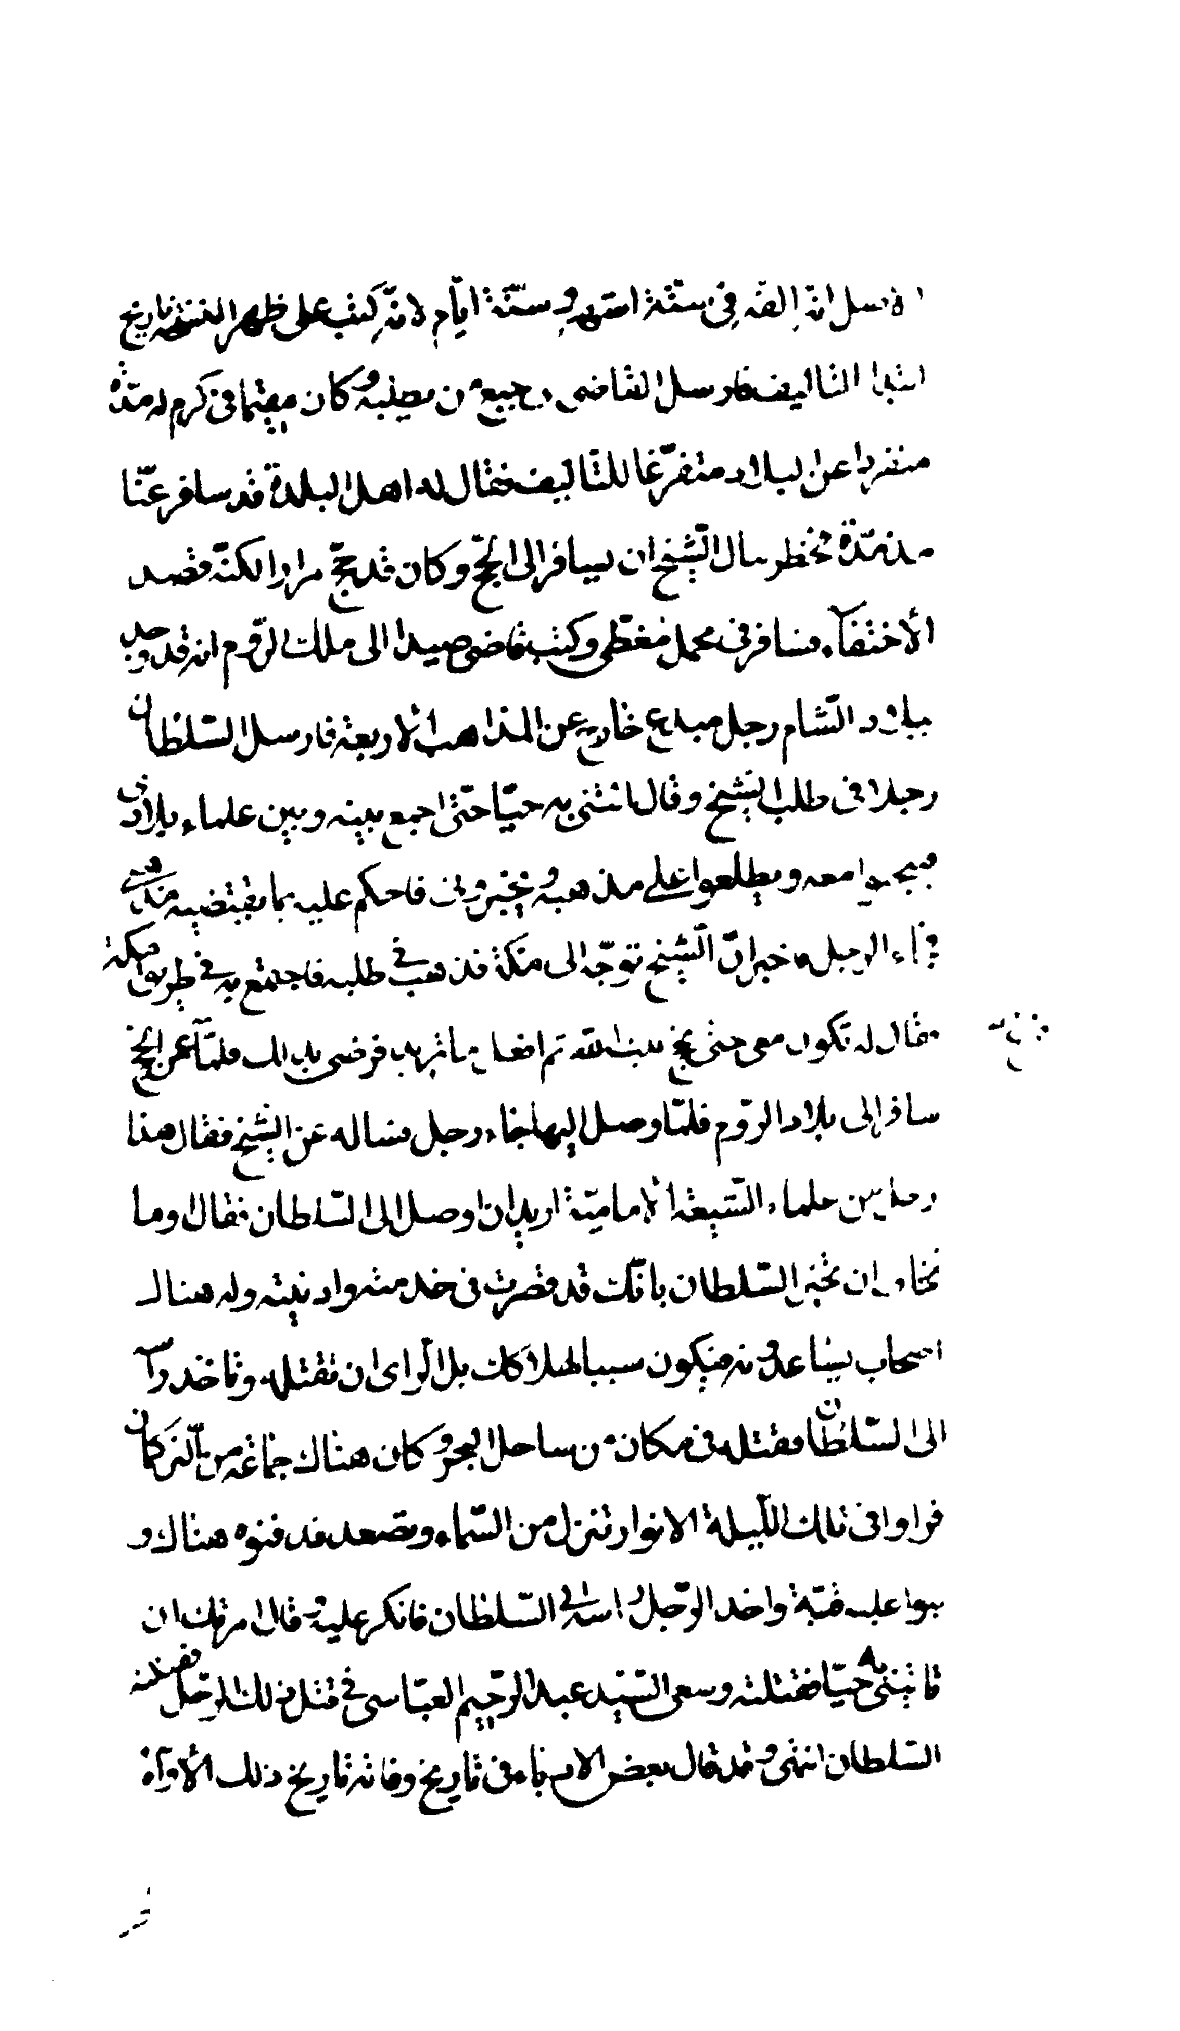 الاصل انه الفه في ستة اشهر وستة ايام لانه كتب على ظهر النسخة تاريخ
ابتدا التاليف فارسل القاضي الى جبع من يطلبه وكان مقيما في كرم له مدة
منفردا عن البلاد متفرّغا للتاليف فقال له اهل البلدة قد سافر عنّا
منذ مدّة فخطر ببال الشّيخ ان يسافر الى الحجّ وكان قد حجّ مرارا لكنّه قصد
الأختفآء فسافر في محمل مغطّى وكتب قاضى صيدا الى ملك الرّوم انه قد وجد
ببلاد الشّام رجل مبدع خارج عن المذاهب الأربعة فارسل السّلطان
رجلا في طلب الشيخ وقال ائتنى به حيّا حتّى اجمع بينه وبين علماء بلادى
فيبحثوا معه ويطلعوا على مذهبه ويخبرونى فاحكم عليه بما يقتضيه مذهبى
فجاء الرجل فاخبر انّ الشّيخ توجّه الى مكّة فذهب في طلبه فاجتمع به في طريق مكة
فقال له تكون معى حتى نحج بيت الله ثم افعل ما تريد فرضى بذلك فلمّا فرغ من الحجّ
سافر الى بلاد الرّوم فلمّا وصل اليها جاء رجل فساله عن الشّيخ فقال هذا
رجل من علماء الشّيعة الأماميّة اريد ان اوصله الى السّلطان فقال اوما
تخاف ان يخبر السّلطان بانّك قد قصرت في خدمته واذيته وله هناك
اصحاب يساعدونه فيكون سببا لهلاكك بل الرّاى ان تقتله وتاخذ راسه
الى السّلطان فقتله في مكان من ساحل البحر وكان هناك جماعة من التركمان
فراوا في تلك اللّيلة الانوار تنزل من السّماء وتصعد فدفنوه هناك و
بنوا عليه قبّة واخذ الرّجل راسه الى السّلطان فانكر عليه وقال امرتك ان
تاتينى به حيّا فقتلته وسعى السّيّد عبد الرّحيم العبّاسى في قتل ذلك الرّجل فقتله
السّلطان انتهى وقد قال بعض الادباء في تاريخ وفاته تاريخ ذلك الأوّاه